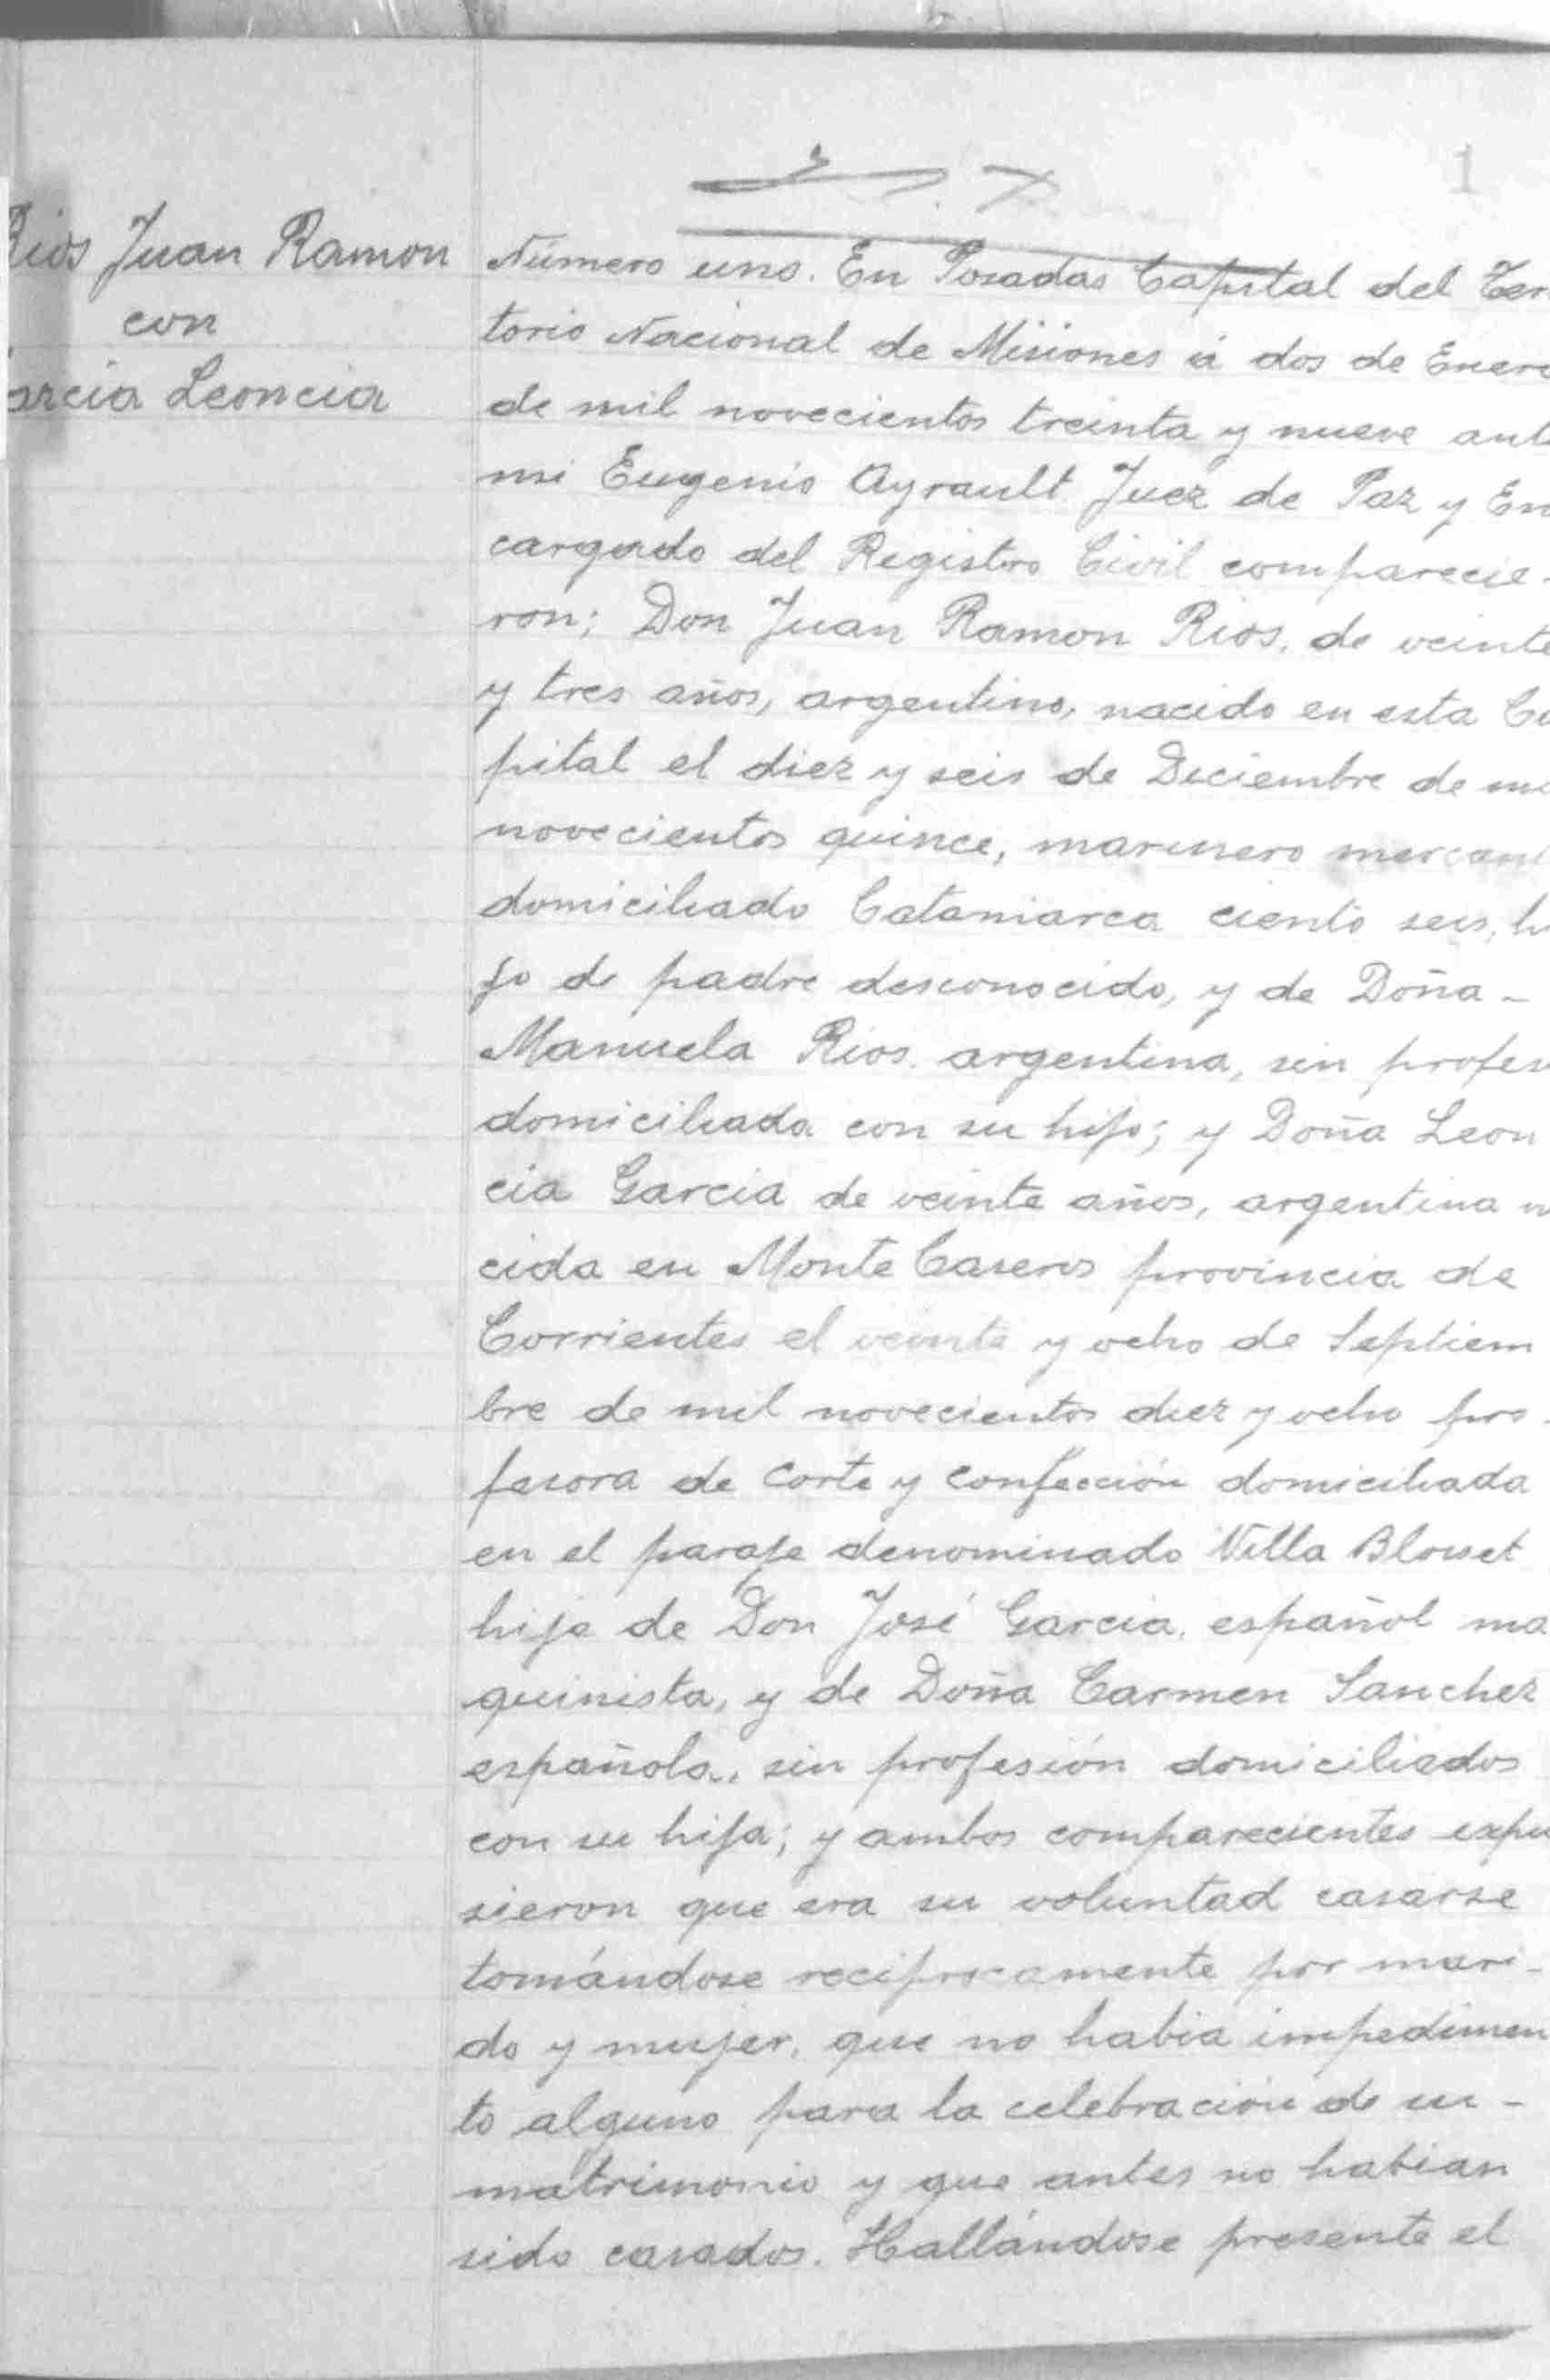 1
Rios Juan Ramon
con
arcia Leoncia
Número uno. En Posadas Capital del Ter
torio Nacional de Misiones á dos de Enero
de mil novecientos treinta y nueve ante
mi Eugenio Ayrault Juez de Paz y En
cargado del Registro Civil comparecie-
ron; Don Juan Ramon Rios, de veinte
y tres años, argentino, nacido en esta Ca
pital el diez y seis de Diciembre de mi
novecientos quince, marinero mercant
domiciliado Catamarca ciento seis, hi
jo de padre desconocido, y de Doña -
Manuela Rios argentina, sin profesi
domiciliada con su hijo; y Doña Leon
cia Garcia de veinte años, argentina na
cida en Monte Caseros provincia de
Corrientes el veinte y ocho de Septiem
bre de mil novecientos diez y ocho pro-
fesora de corte y confección domiciliada
en el paraje denominado Villa Blosset
hija de Don José Garcia, español ma
quinista, y de Doña Carmen Sanchez
española, sin profesión domiciliados
con su hija; y ambos comparecientes expu
sieron que era su voluntad casarse
tomándose reciprocamente por mari-
do y mujer, que no habia impedimen
to alguno para la celebración de su -
matrimonio y que antes no habian
sido casados. Hallándose presente el